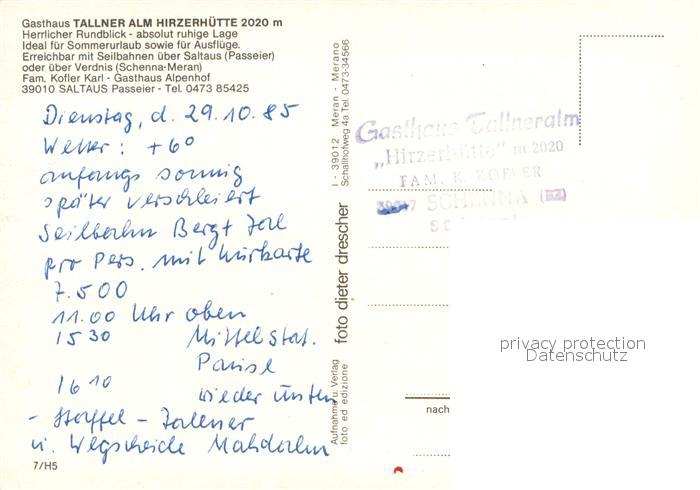 Gasthaus TALLNER ALM HIRZERHÜTTE 2020 m
Herrlicher Rundblick - absolut ruhige Lage
Ideal für Sommerurlaub sowie für Ausflüge.
Erreichbar mit Seilbahnen über Saltaus (Passeier)
oder über Verdnis (Schenna-Meran)
Fam. Kofler Karl - Gasthaus Alpenhof
39010 SALTAUS Passeier - Tel. 0473 85425
Dienstag, d. 29.10.85
Wetter: +6°
anfangs sonnig
später verschleiert
Seilbahn Berg+Tal
pro Pers. mit Kurkarte
7.500
11.00 Uhr oben
15 30 Mittelstat.
Pause
16 10 wieder unten
- Staffel - Tallner
u. Wegscheide Mahdalm
7/H5
I - 39012 Meran - Merano
Schallhofweg 4a Tel. 0473-34566
foto dieter drescher
Aufnahme u. Verlag
foto ed edizione
Gasthaus Tallneralm
„Hirzerhütte" m 2020
FAM. K. KOFLER
39017 SCHENNA (BZ)
nach
privacy protection
Datenschutz